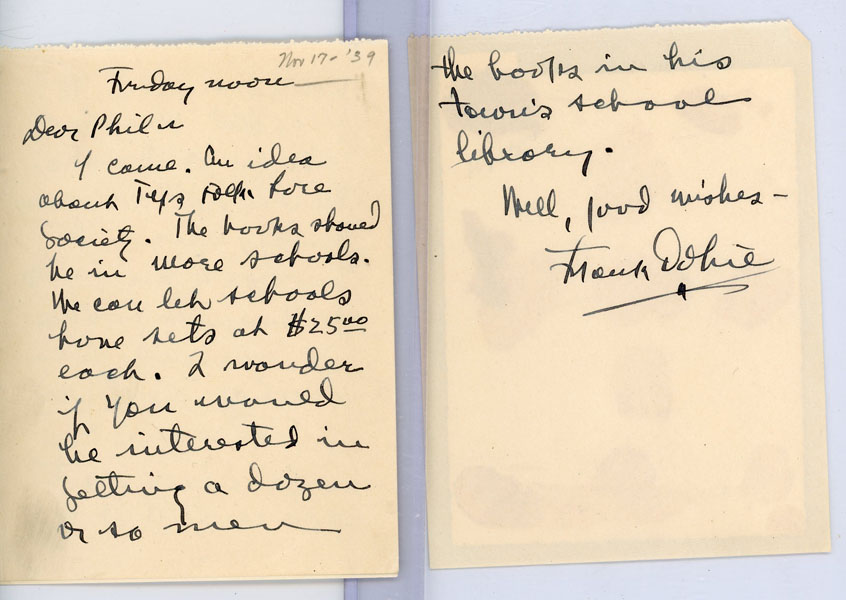 Nov 17 - '39
Friday noon
Dear Phil
I come. An idea
about Texs Folk Lore
Society. The books should
be in more schools.
We can let schools
have sets at $25.00
each. I wonder
if you would
be interested in
getting a dozen
or so men
the books in his
town's school
library.
Well, good wishes -
Frank Dobie